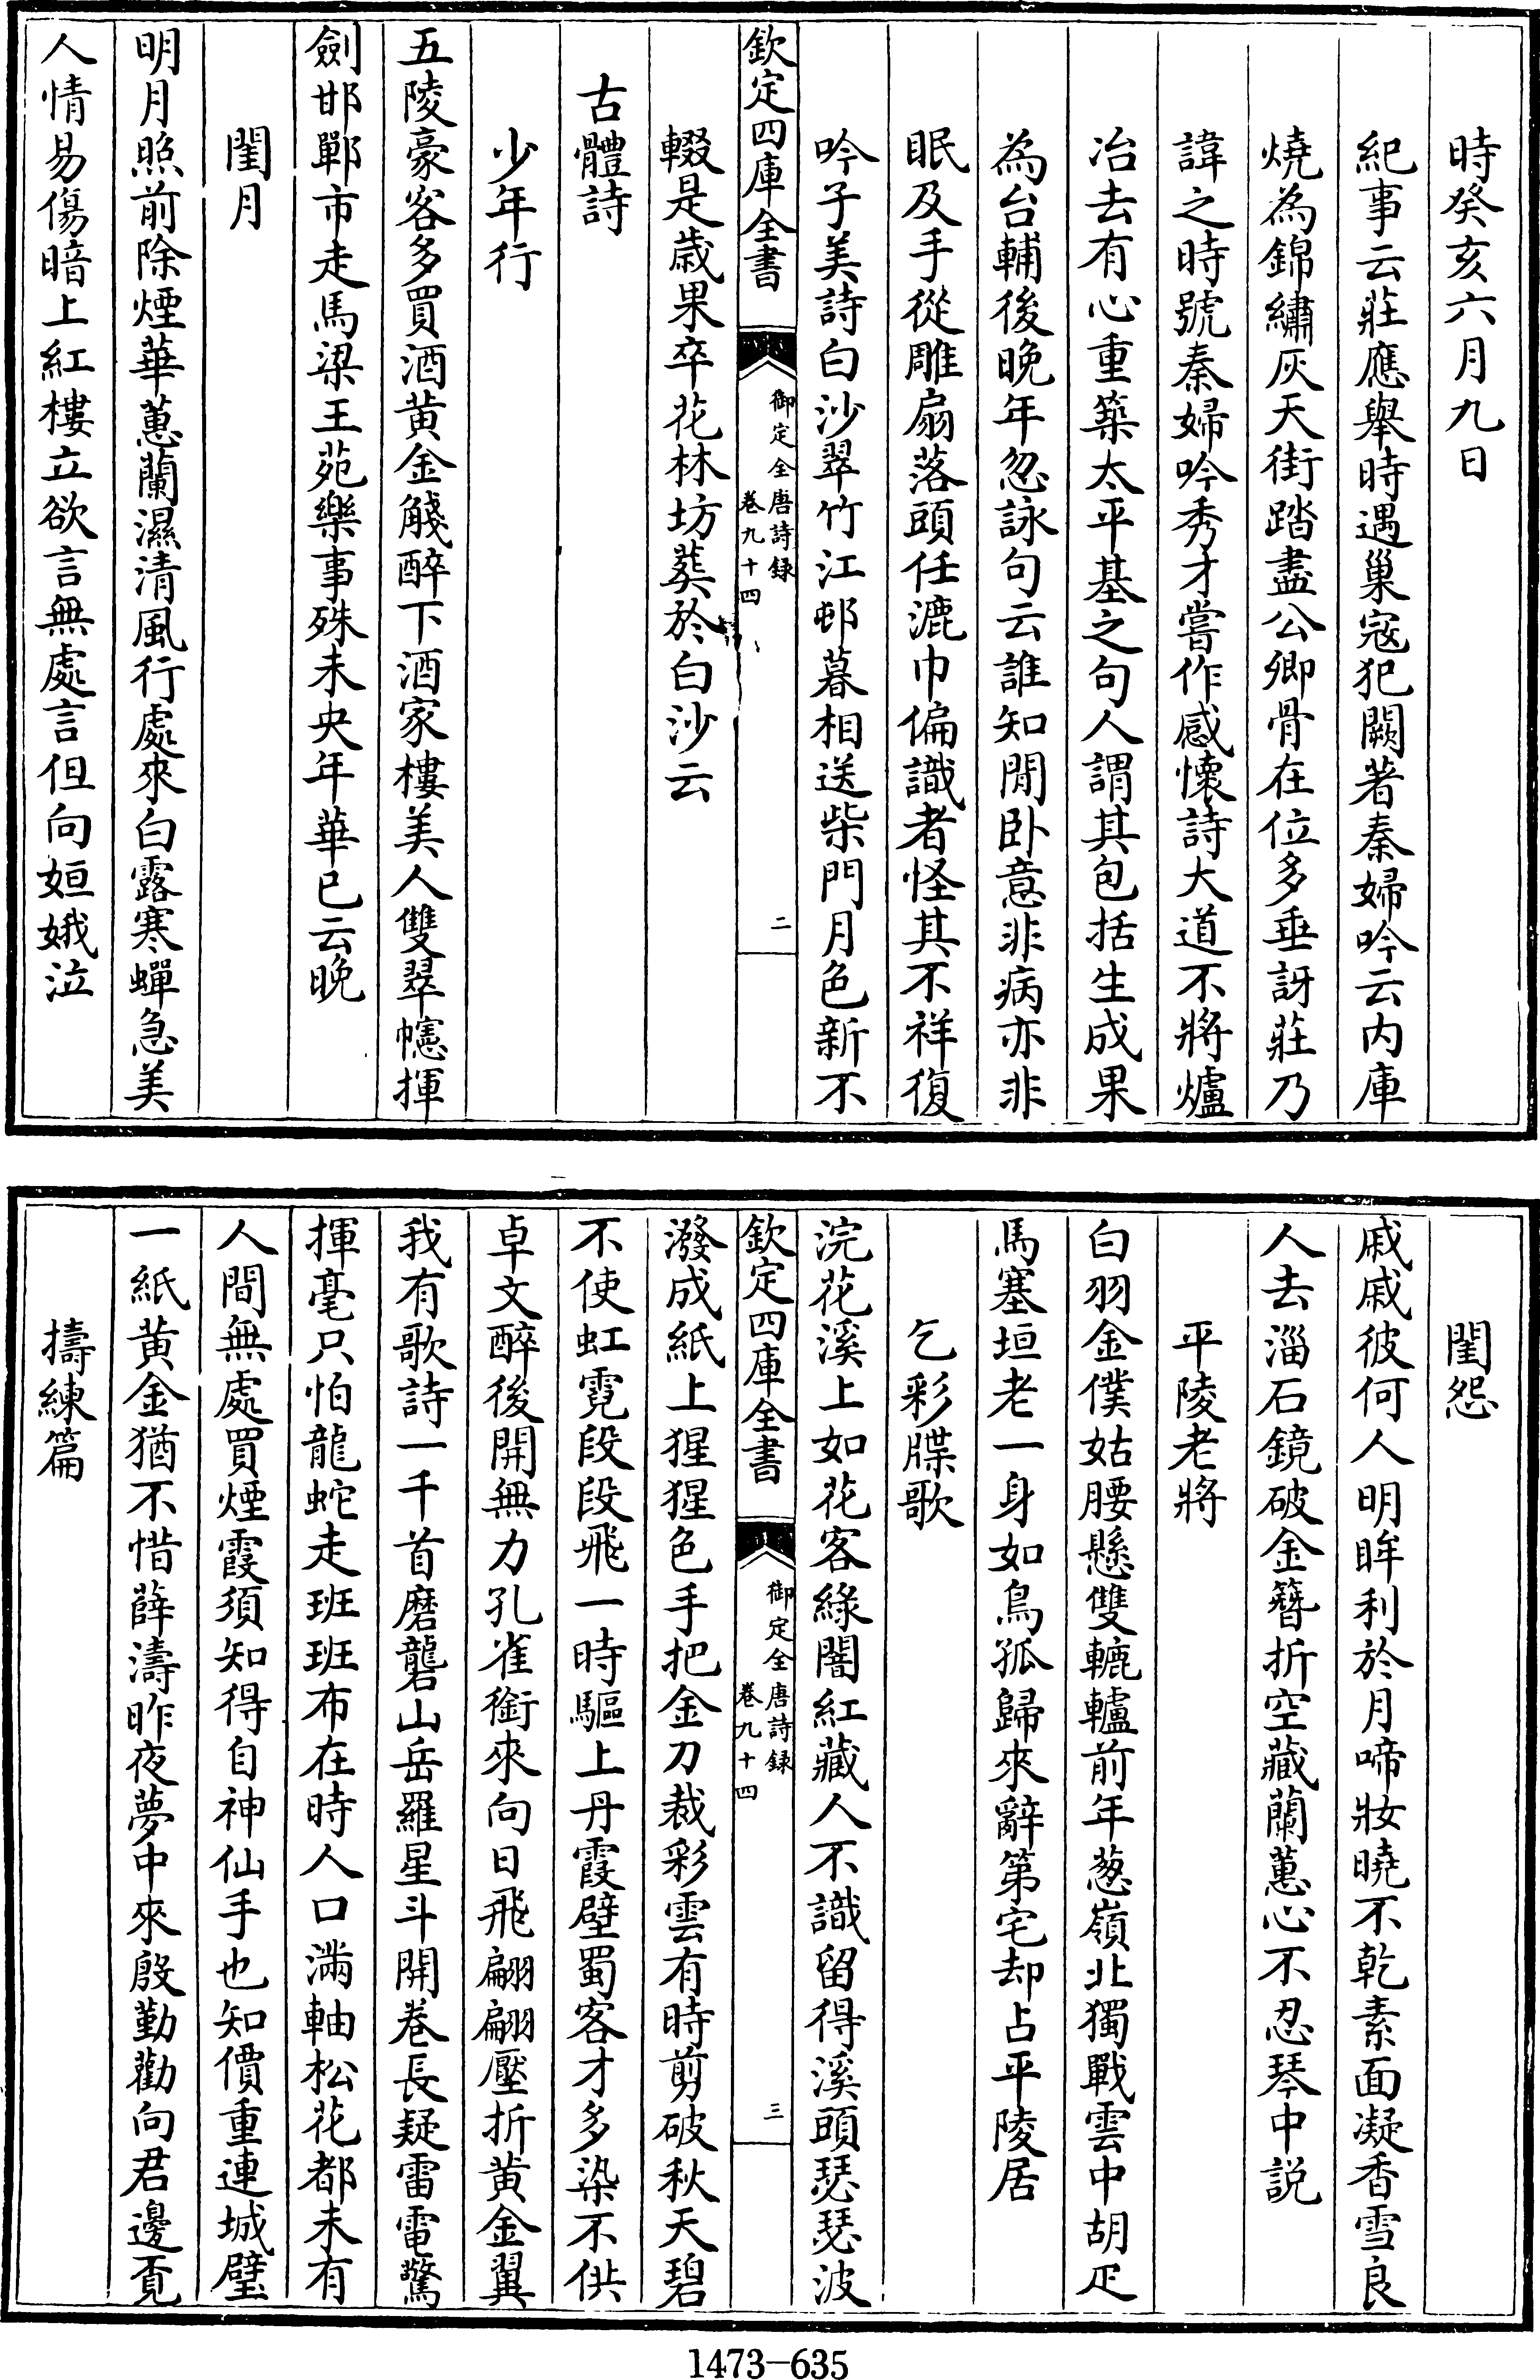 時癸亥六月九日
紀事云莊應舉時遇巢寇犯闕著秦婦吟云内庫
燒為錦繡灰天街踏盡公卿骨在位多垂訝莊乃
諱之時號秦婦吟秀才嘗作感懐詩大道不將爐
冶去有心重築太平基之句人謂其包括生成果
為台輔後晚年忽詠句云誰知閒卧意非病亦非
眠及手從雕扇落頭任漉巾偏識者怪其不祥復
吟子美詩白沙翠竹江邨暮相送柴門月色新不
欽定四庫全書
御定全唐詩録
卷九十四
二
輟是歲果卒花林坊葬於白沙云
古體詩
少年行
五陵豪客多買酒黄金醆醉下酒家樓美人雙翠幰揮
劍邯鄲市走馬梁王苑樂事殊未央年華已云晚
閨月
明月照前除煙華蕙蘭濕清風行處來白露寒蟬急美
人情易傷暗上紅樓立欲言無處言但向姮娥泣
閨怨
戚戚彼何人明眸利於月啼妝曉不乾素面凝香雪良
人去淄石鏡破金簪折空藏蘭蕙心不忍琴中説
平陵老將
白羽金僕姑腰懸雙轆轤前年葱嶺北獨戰雲中胡疋
馬塞垣老一身如鳥孤歸來辭第宅却占平陵居
乞彩牋歌
浣花溪上如花客綠闇紅藏人不識留得溪頭瑟瑟波
欽定四庫全書
御定全唐詩録
卷九十四
三
潑成紙上猩猩色手把金刀裁彩雲有時剪破秋天碧
不使虹霓段段飛一時驅上丹霞壁蜀客才多染不供
卓文醉後開無力孔雀銜來向日飛翩翩壓折黄金翼
我有歌詩一千首磨礱山岳羅星斗開卷長疑雷電驚
揮毫只怕龍蛇走班班布在時人口滿軸松花都未有
人間無處買煙霞須知得自神仙手也知價重連城璧
一紙黄金猶不惜薛濤昨夜夢中來殷勤勸向君邊覔
擣練篇
1473-635